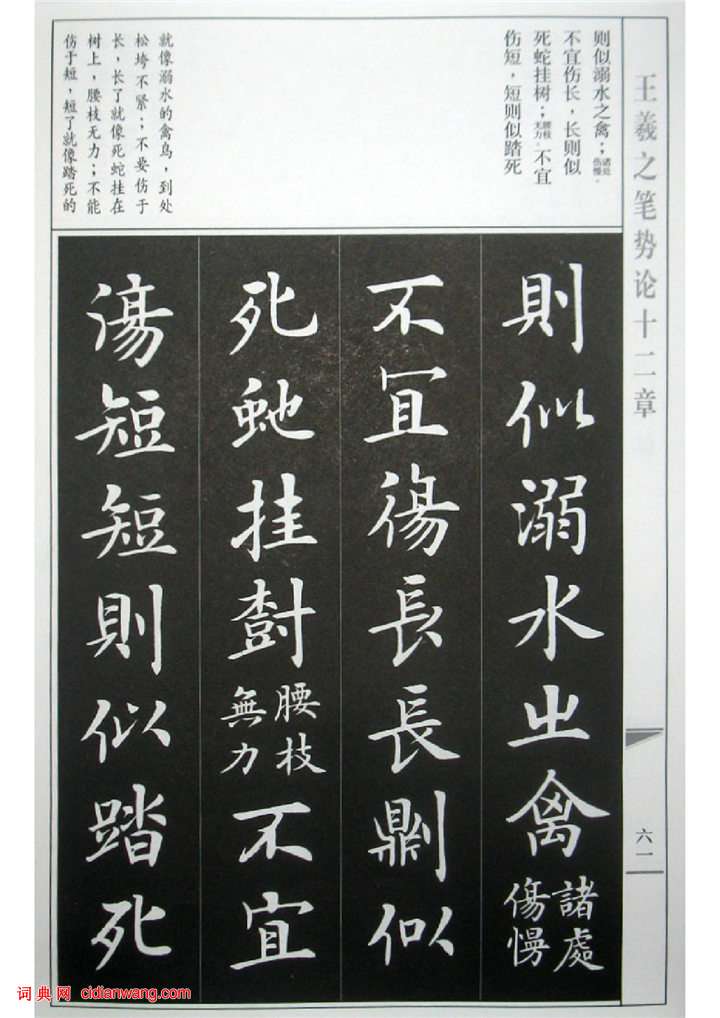 王羲之笔势论十二章
六一
则似溺水之禽；诸处伤慢。
不宜伤长，长则似
死蛇挂树；腰枝无力。不宜
伤短，短则似踏死
就像溺水的禽鸟，到处
松垮不紧；不要伤于
长，长了就像死蛇挂在
树上，腰枝无力；不能
伤于短，短了就像踏死的
則似溺水之禽諸處傷慢
不宜傷長長則似
死虵挂樹腰枝無力不宜
傷短短則似踏死
词典网 cidianwang.com